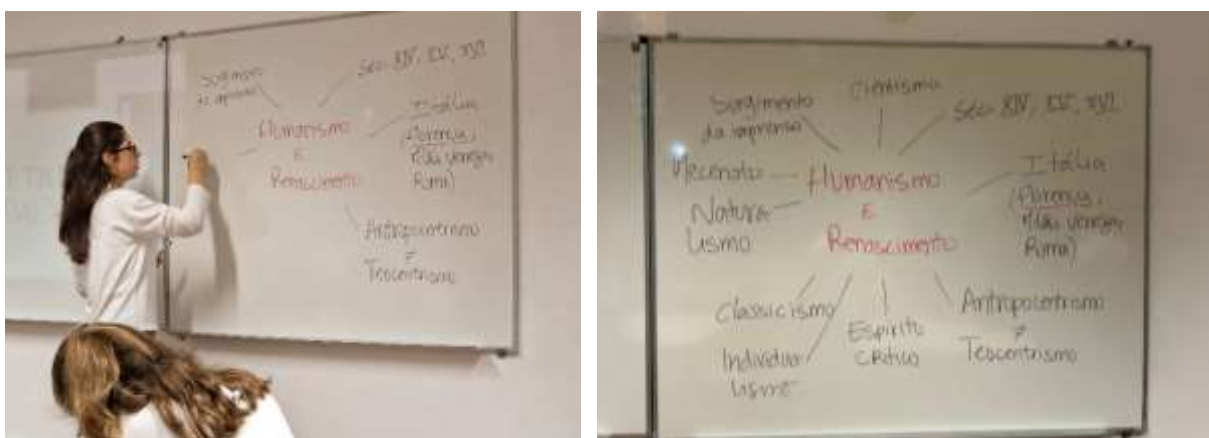 Surgimento
da imprensa
Séc. XIV, XV, XVI
Humanismo
E
Renascimento
Itália
(Florença,
Milão, Veneza,
Roma)
Antropocentrismo
≠
Teocentrismo
Surgimento
da imprensa
Cientismo
Séc. XIV, XV, XVI
Mecenato
Humanismo
E
Renascimento
Itália
(Florença,
Milão, Veneza,
Roma)
Natura
lismo
Classicismo
Espírito
crítico
Antropocentrismo
≠
Teocentrismo
Individua
lismo